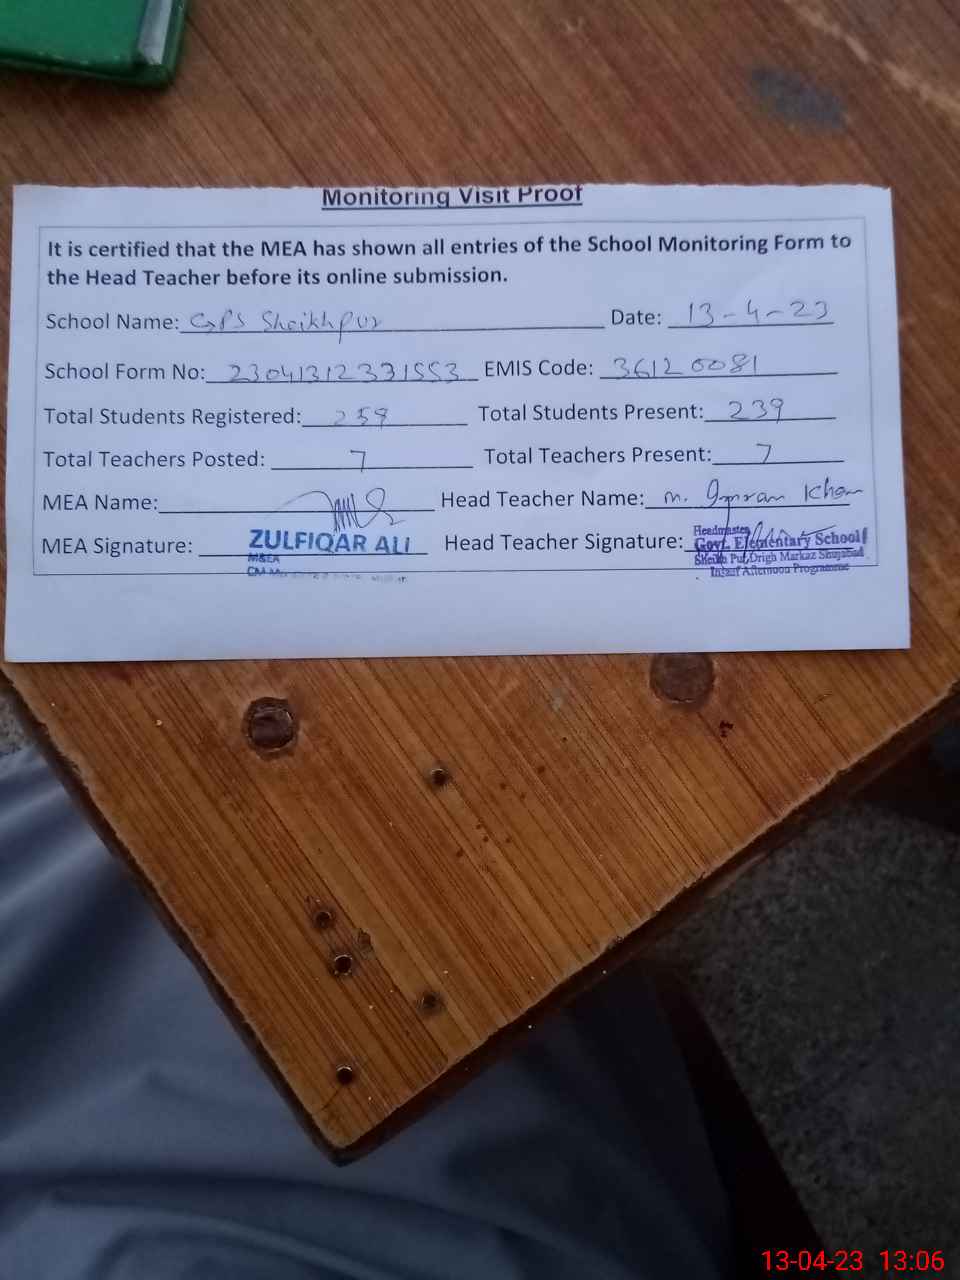 Monitoring Visit Proof
It is certified that the MEA has shown all entries of the School Monitoring Form to
the Head Teacher before its online submission.
School Name: GPS Sheikhpur Date: 13-4-23
School Form No: 23041312331553 EMIS Code: 36120081
Total Students Registered: 259 Total Students Present: 239
Total Teachers Posted: 7 Total Teachers Present: 7
MEA Name: Head Teacher Name: M. Imran Khan
MEA Signature: ZULFIQAR ALI Head Teacher Signature:
M&EA
Headmaster
Govt. Elementary School
Sheikh Pur, Drigh Markaz Shujabad
Insaf Afternoon Programme
13-04-23 13:06